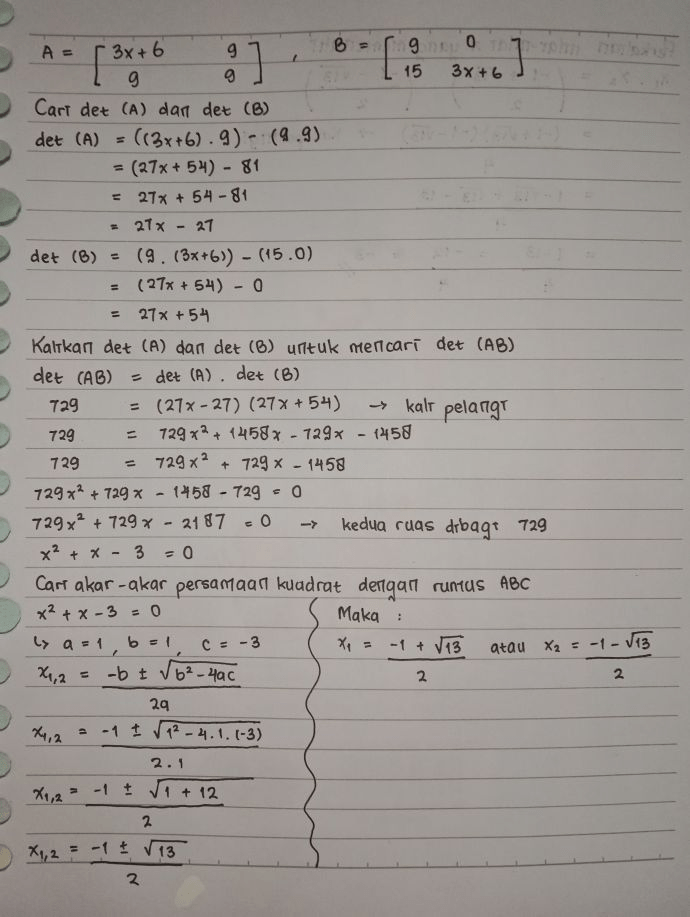 A = [ 3x+6 9 ; 9 9 ] , B = [ 9 0 ; 15 3x+6 ]
Cari det (A) dan det (B)
det (A) = ((3x+6) . 9) - (9.9)
= (27x + 54) - 81
= 27x + 54 - 81
= 27x - 27
det (B) = (9 . (3x+6)) - (15.0)
= (27x + 54) - 0
= 27x + 54
Kalikan det (A) dan det (B) untuk mencari det (AB)
det (AB) = det (A) . det (B)
729 = (27x - 27) (27x + 54) → kali pelangi
729 = 729x² + 1458x - 729x - 1458
729 = 729x² + 729x - 1458
729x² + 729x - 1458 - 729 = 0
729x² + 729x - 2187 = 0 → kedua ruas dibagi 729
x² + x - 3 = 0
Cari akar-akar persamaan kuadrat dengan rumus ABC
x² + x - 3 = 0
↳ a = 1 , b = 1 , c = -3
x₁,₂ = (-b ± √(b² - 4ac)) / 2a
x₁,₂ = (-1 ± √(1² - 4.1.(-3))) / 2.1
x₁,₂ = (-1 ± √(1 + 12)) / 2
x₁,₂ = (-1 ± √13) / 2
Maka :
x₁ = (-1 + √13) / 2 atau x₂ = (-1 - √13) / 2